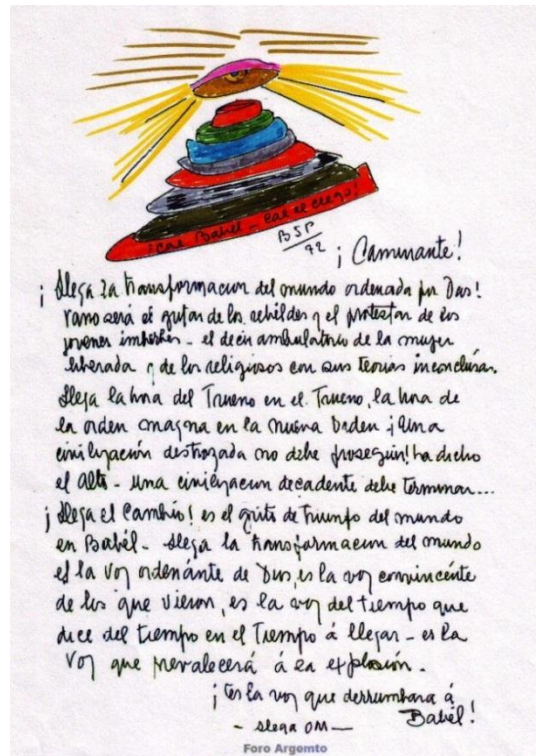 ¡cae Babel - cae el ciego!
BSP
72
¡Caminante!
¡Llega la transformacion del mundo ordenada por Dios!
vano será el gritar de los rebeldes y el protestar de los
jovenes imberbes - el decir ambulatorio de la mujer
liberada y de los religiosos con sus teorias inconclusas.
Llega la hora del Trueno en el Trueno, la hora de
la orden magna en la nueva orden ¡una
civilizacion destrozada no debe proseguir! ha dicho
el Alto - una civilizacion decadente debe terminar...
¡Llega el cambio! es el grito de triunfo del mundo
en Babél - Llega la transformacion del mundo
es la voz ordenánte de Dios, es la voz convincente
de los que vieron, es la voz del tiempo que
dice del tiempo en el Tiempo á llegar - es la
voz que prevalecerá á la explosión.
¡es la voz que derrumbara á
Babél!
- Llega OM -
Foro Argemto